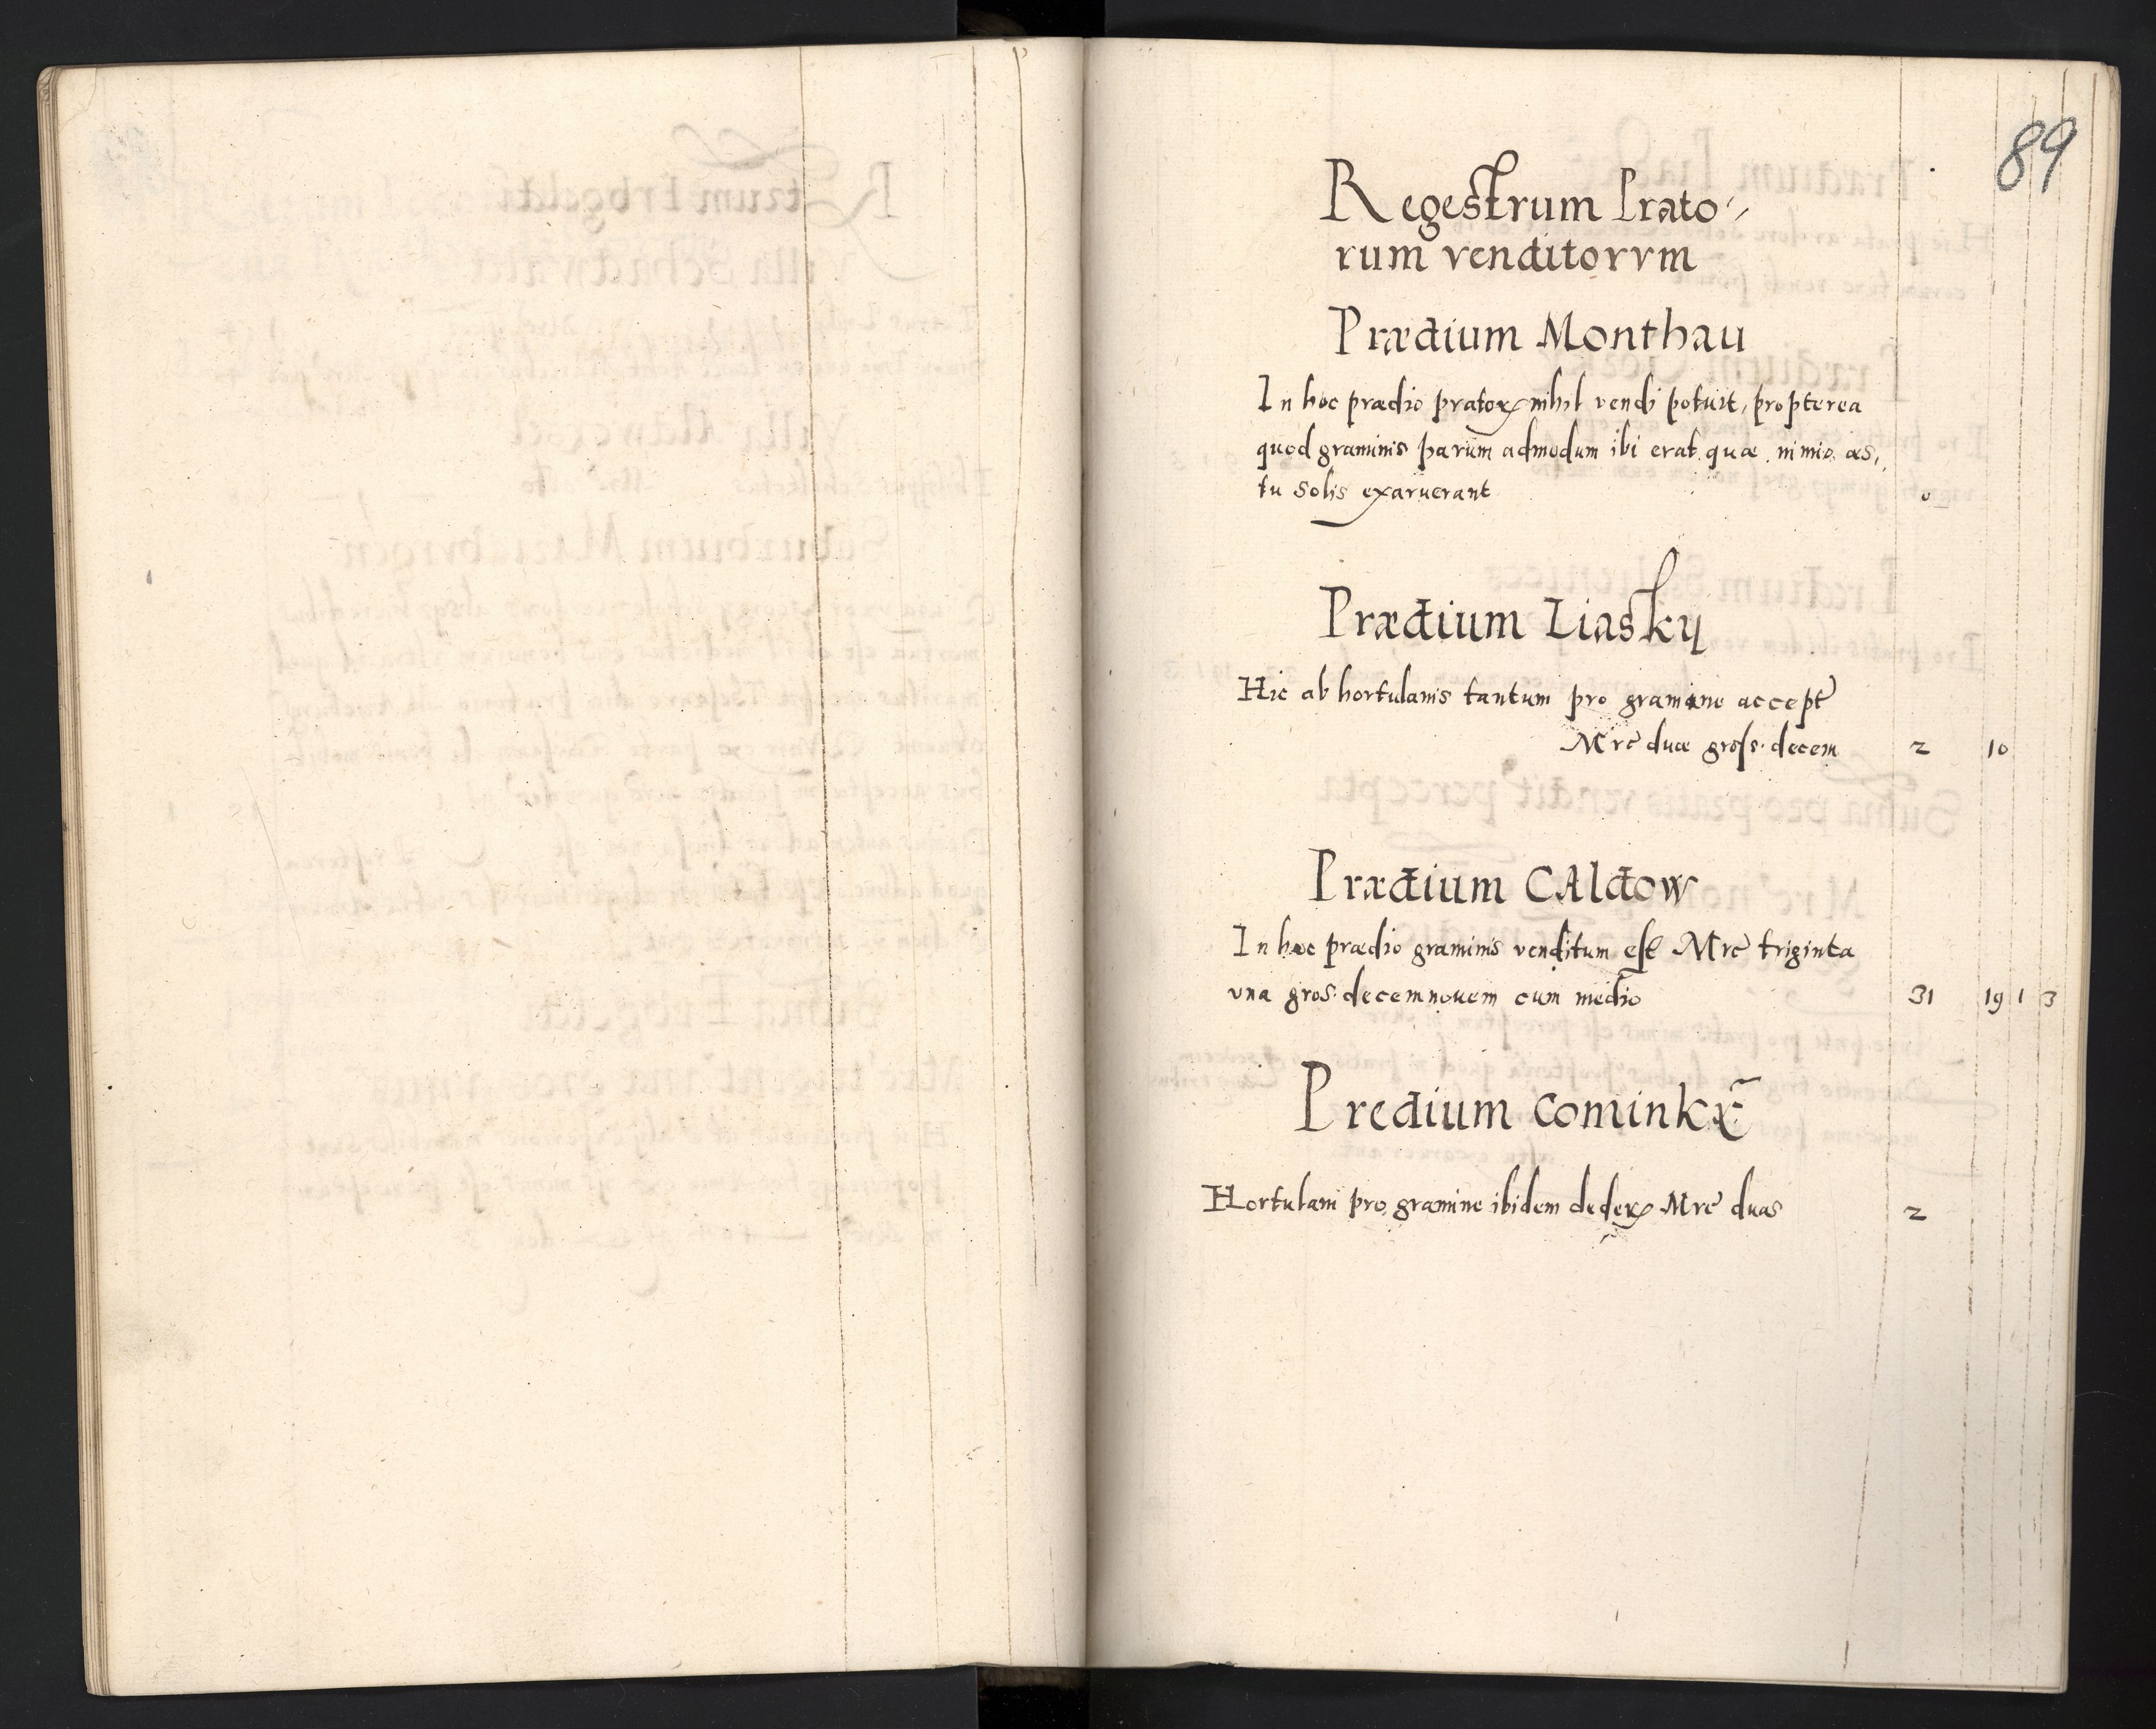 89
Regestrum Prato⸗
rum venditorvm
Prædium Monthau
In hoc prædio pratoꝝ nihil vendi potuit, propterea
quod graminis parum admodum ibi erat quæ nimio æs,
tu Solis exaruerant o
Prædium Liasky
Hic ab hortulanis tantum pro gramine accept
Mrc duæ gross. decem 2 10
Prædium CAldow
In hoc prædio graminis venditum est Mrc triginta
vna gros. decemnouem cum medio 31 19 1 3
Predium
Hortulani pro gramine ibidem dederꝝ Mrc duas 2